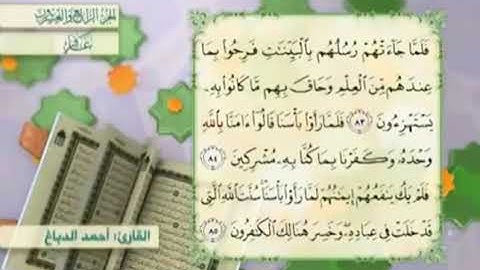 الجزء الرابع والعشرون
فَلَمَّا جَآءَتْهُمْ رُسُلُهُم بِٱلْبَيِّنَٰتِ فَرِحُوا۟ بِمَا
عِندَهُم مِّنَ ٱلْعِلْمِ وَحَاقَ بِهِم مَّا كَانُوا۟ بِهِۦ
يَسْتَهْزِءُونَ ٨٣ فَلَمَّا رَأَوْا۟ بَأْسَنَا قَالُوٓا۟ ءَامَنَّا بِٱللَّهِ
وَحْدَهُۥ وَكَفَرْنَا بِمَا كُنَّا بِهِۦ مُشْرِكِينَ ٨٤
فَلَمْ يَكُ يَنفَعُهُمْ إِيمَٰنُهُمْ لَمَّا رَأَوْا۟ بَأْسَنَا سُنَّتَ ٱللَّهِ ٱلَّتِى
قَدْ خَلَتْ فِى عِبَادِهِۦ وَخَسِرَ هُنَالِكَ ٱلْكَٰفِرُونَ ٨٥
القارئ: أحمد الدباغ